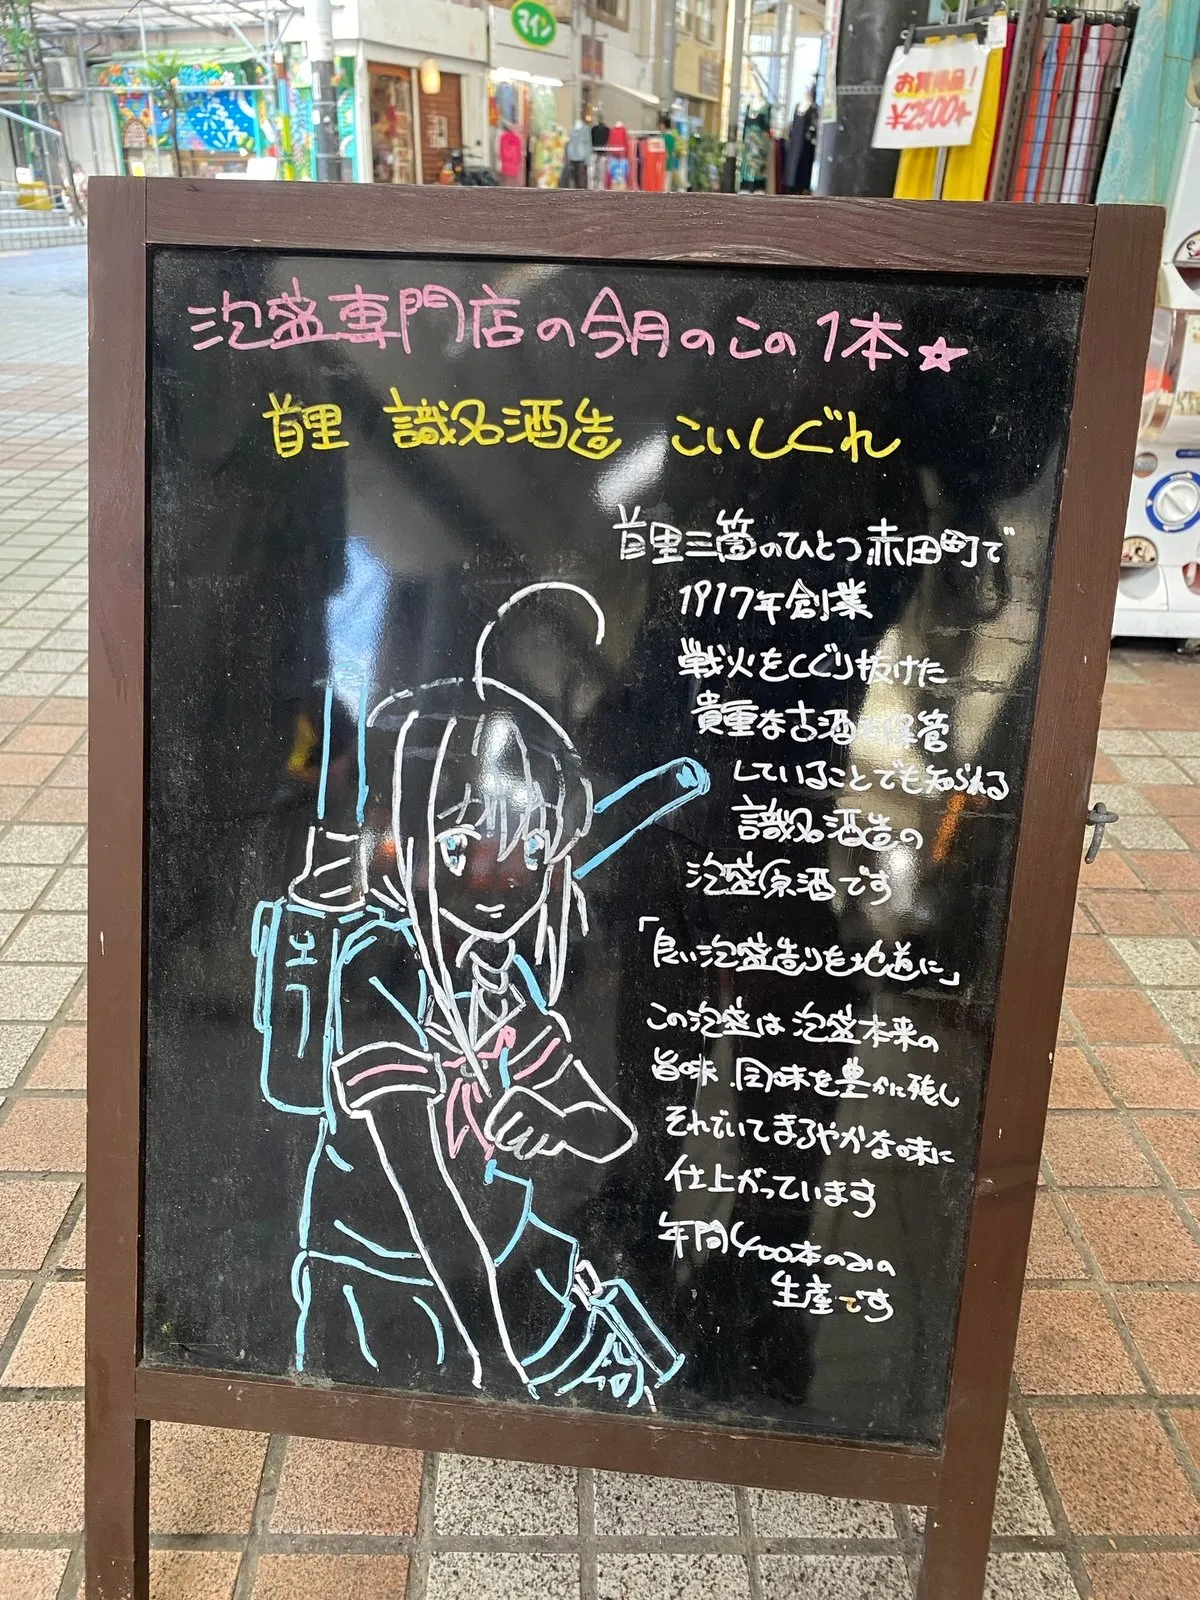 マイン
お買得品!
¥2500+
泡盛専門店の今月のこの1本☆
首里 識名酒造 こいしぐれ
首里三箇のひとつ赤田町で
1917年創業
戦火をくぐり抜けた
貴重な古酒を保管
していることでも知られる
識名酒造の
泡盛原酒です
「良い泡盛造りを地道に」
この泡盛は泡盛本来の
旨味 風味を豊かに残し
それでいてまろやかな味に
仕上がっています
年間400本のみの
生産です